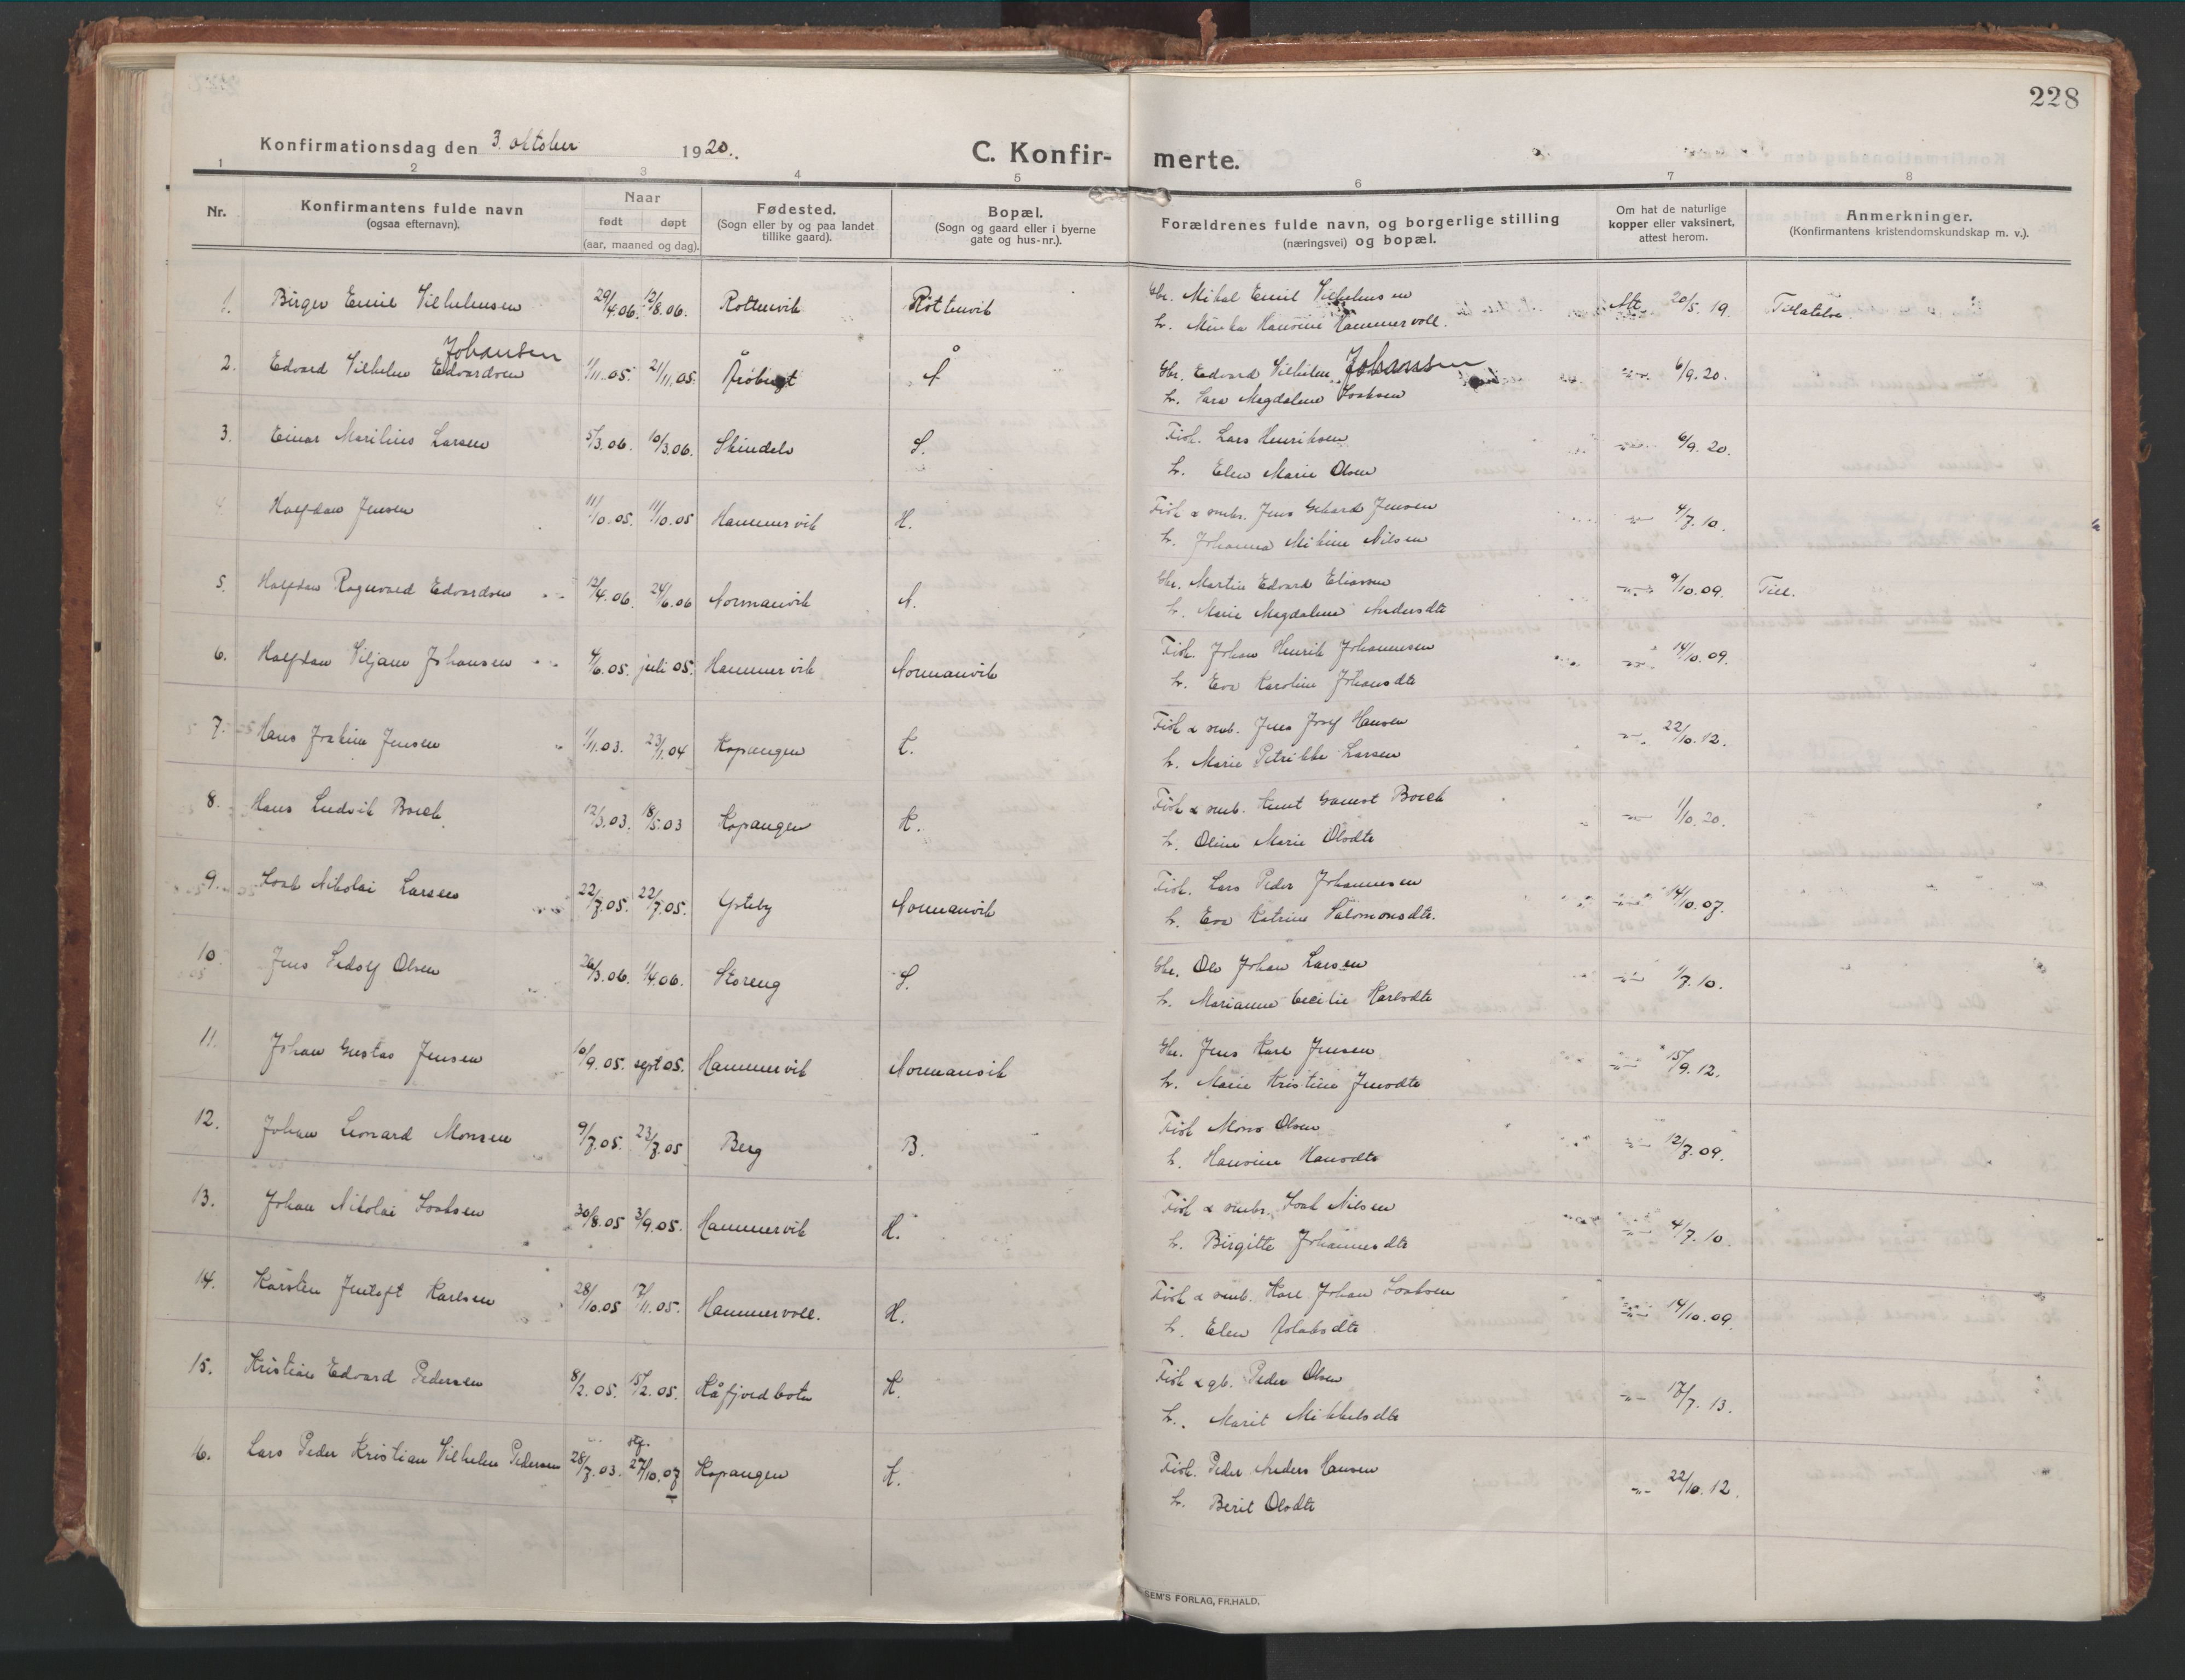 228
Konfirmationsdag den 3. oktober 1920.
C. Konfirmerte.
1 2 3 4 5 6 7 8
Nr.
Konfirmantens fulde navn
(ogsaa efternavn).
Naar
født døpt
(aar, maaned og dag).
Fødested.
(Sogn eller by og paa landet
tillike gaard).
Bopæl.
(Sogn og gaard eller i byerne
gate og hus-nr.).
Forældrenes fulde navn, og borgerlige stilling
(næringsvei) og bopæl.
Om hat de naturlige
kopper eller vaksinert,
attest herom.
Anmerkninger.
(Konfirmantens kristendomskundskap m. v.).
1. Birger Emil Vilhelmsen 29/4.06. 12/8.06. Rottenvik Rottenvik Gbr. Mikal Emil Vilhelmsen Att. 20/5.19. Tillatelse.
h. Minka Hansine Hammervoll.
Johansen
2. Edvard Vilhelm Edvardsen 1/11.05. 21/11.05. Årøbugt Å Gbr. Edvard Vilhelm Johansen -"- 6/9.20.
h. Sara Magdalene Isaksen
3. Einar Marilius Larsen 5/3.06. 10/3.06. Skindelv S. Fisk. Lars Henriksen -"- 6/9.20.
h. Elen Marie Olsen
4 Halfdan Jensen 11/10.05. 11/10.05 Hammervik H. Fisk & smbr. Jens Gerhard Jensen -"- 4/7.10.
h. Johanna Mikine Nilsen
5. Halfdan Ragnvald Edvardsen 12/4.06. 24/6.06 Normanvik N. Gbr. Martin Edvard Eliassen -"- 9/10.09. Till.
h. Marie Magdalene Andersdtr
6. Halfdan Viljam Johansen 4/6.05. juli 05. Hammervik Normanvik Fisk. Johan Henrik Johannesen -"- 14/10.09.
h. Eva Karoline Johansdtr
7. Hans Joakim Jensen 1/11.03. 23/1.04 Kopangen K. Fisk & smb. Jens Josef Hansen -"- 22/10.12.
h. Marie Petrikke Larsen
8. Hans Ludvik Borch 12/3.03. 18/5.03 Kopangen K. Fisk & smb. Knut Gamst Borch -"- 1/10.20.
h. Oline Marie Olsdtr
9. Isak Nikolai Larsen 22/7.05. 22/7.05. Ysteby Normanvik Fisk. Lars Peder Johannesen -"- 14/10.07.
h. Eva Katrine Salomonsdtr.
10 Jens Sedolf Olsen 26/3.06. 1/4.06. Storeng S. Gbr. Ole Johan Larsen -"- 1/7.10.
h. Marianne Cecilie Karlsdtr
11. Johan Gustav Jensen 10/9.05. sept 05. Hammervik Normanvik Gbr. Jens Karl Jensen -"- 15/9.12.
h. Marie Kristine Jensdtr
12. Johan Leonard Monsen 9/7.05. 23/7.05 Berg B. Fisk Mons Olsen -"- 12/7.09.
h. Hansine Hansdtr
13. Johan Nikolai Isaksen 30/8.05 3/9.05. Hammervik H. Fisk & smbr. Isak Nilsen -"- 4/7.10.
h. Birgitte Johannesdtr
14. Karsten Jentoft Karlsen 28/10.05 17/11.05. Hammervoll. H. Fisk & smb. Karl Johan Isaksen -"- 14/10.09
h. Elen
15. Kristian Edvard Pedersen 8/2.05. 15/2.05. Kåfjordbotn K. Fisk & gb. Peder Olsen -"- 17/7.13.
h. Marit Mikkelsdtr
16. Lars Peder Kristian Vilhelm Pedersen 28/7.03. 27/10.07 Kopangen K. Fisk. Peder Anders Hansen -"- 22/10.12.
h. Berit Olsdtr
SEM'S FORLAG, FR.HALD.